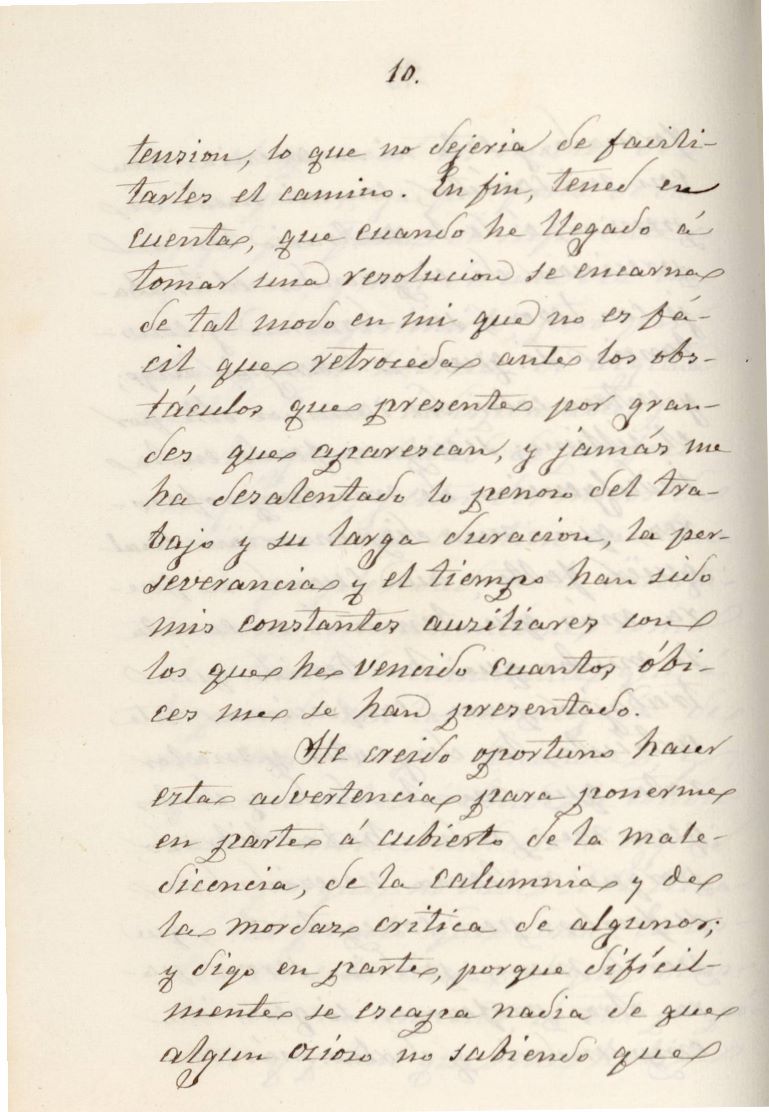 10.
tension, lo que no dejeria de facili-
tarles el camino. En fin, tened en
cuenta, que cuando he llegado á
tomar una resolucion se encarna
de tal modo en mi que no es fá-
cil que retroceda ante los obs-
táculos que presente por gran-
des que aparescan, y jamás me
ha desalentado lo penoso del tra-
bajo y su larga duracion, la per-
severancia y el tiempo han sido
mis constantes ausiliares con
los que he vencido cuantos óbi-
ces me se han presentado.
He creido oportuno hacer
esta advertencia para ponerme
en parte á cubierto de la male-
dicencia, de la calumnia y de
la mordaz critica de algunos;
y digo en parte, porque difícil-
mente se escapa nadia de que
algun ocioso no sabiendo que